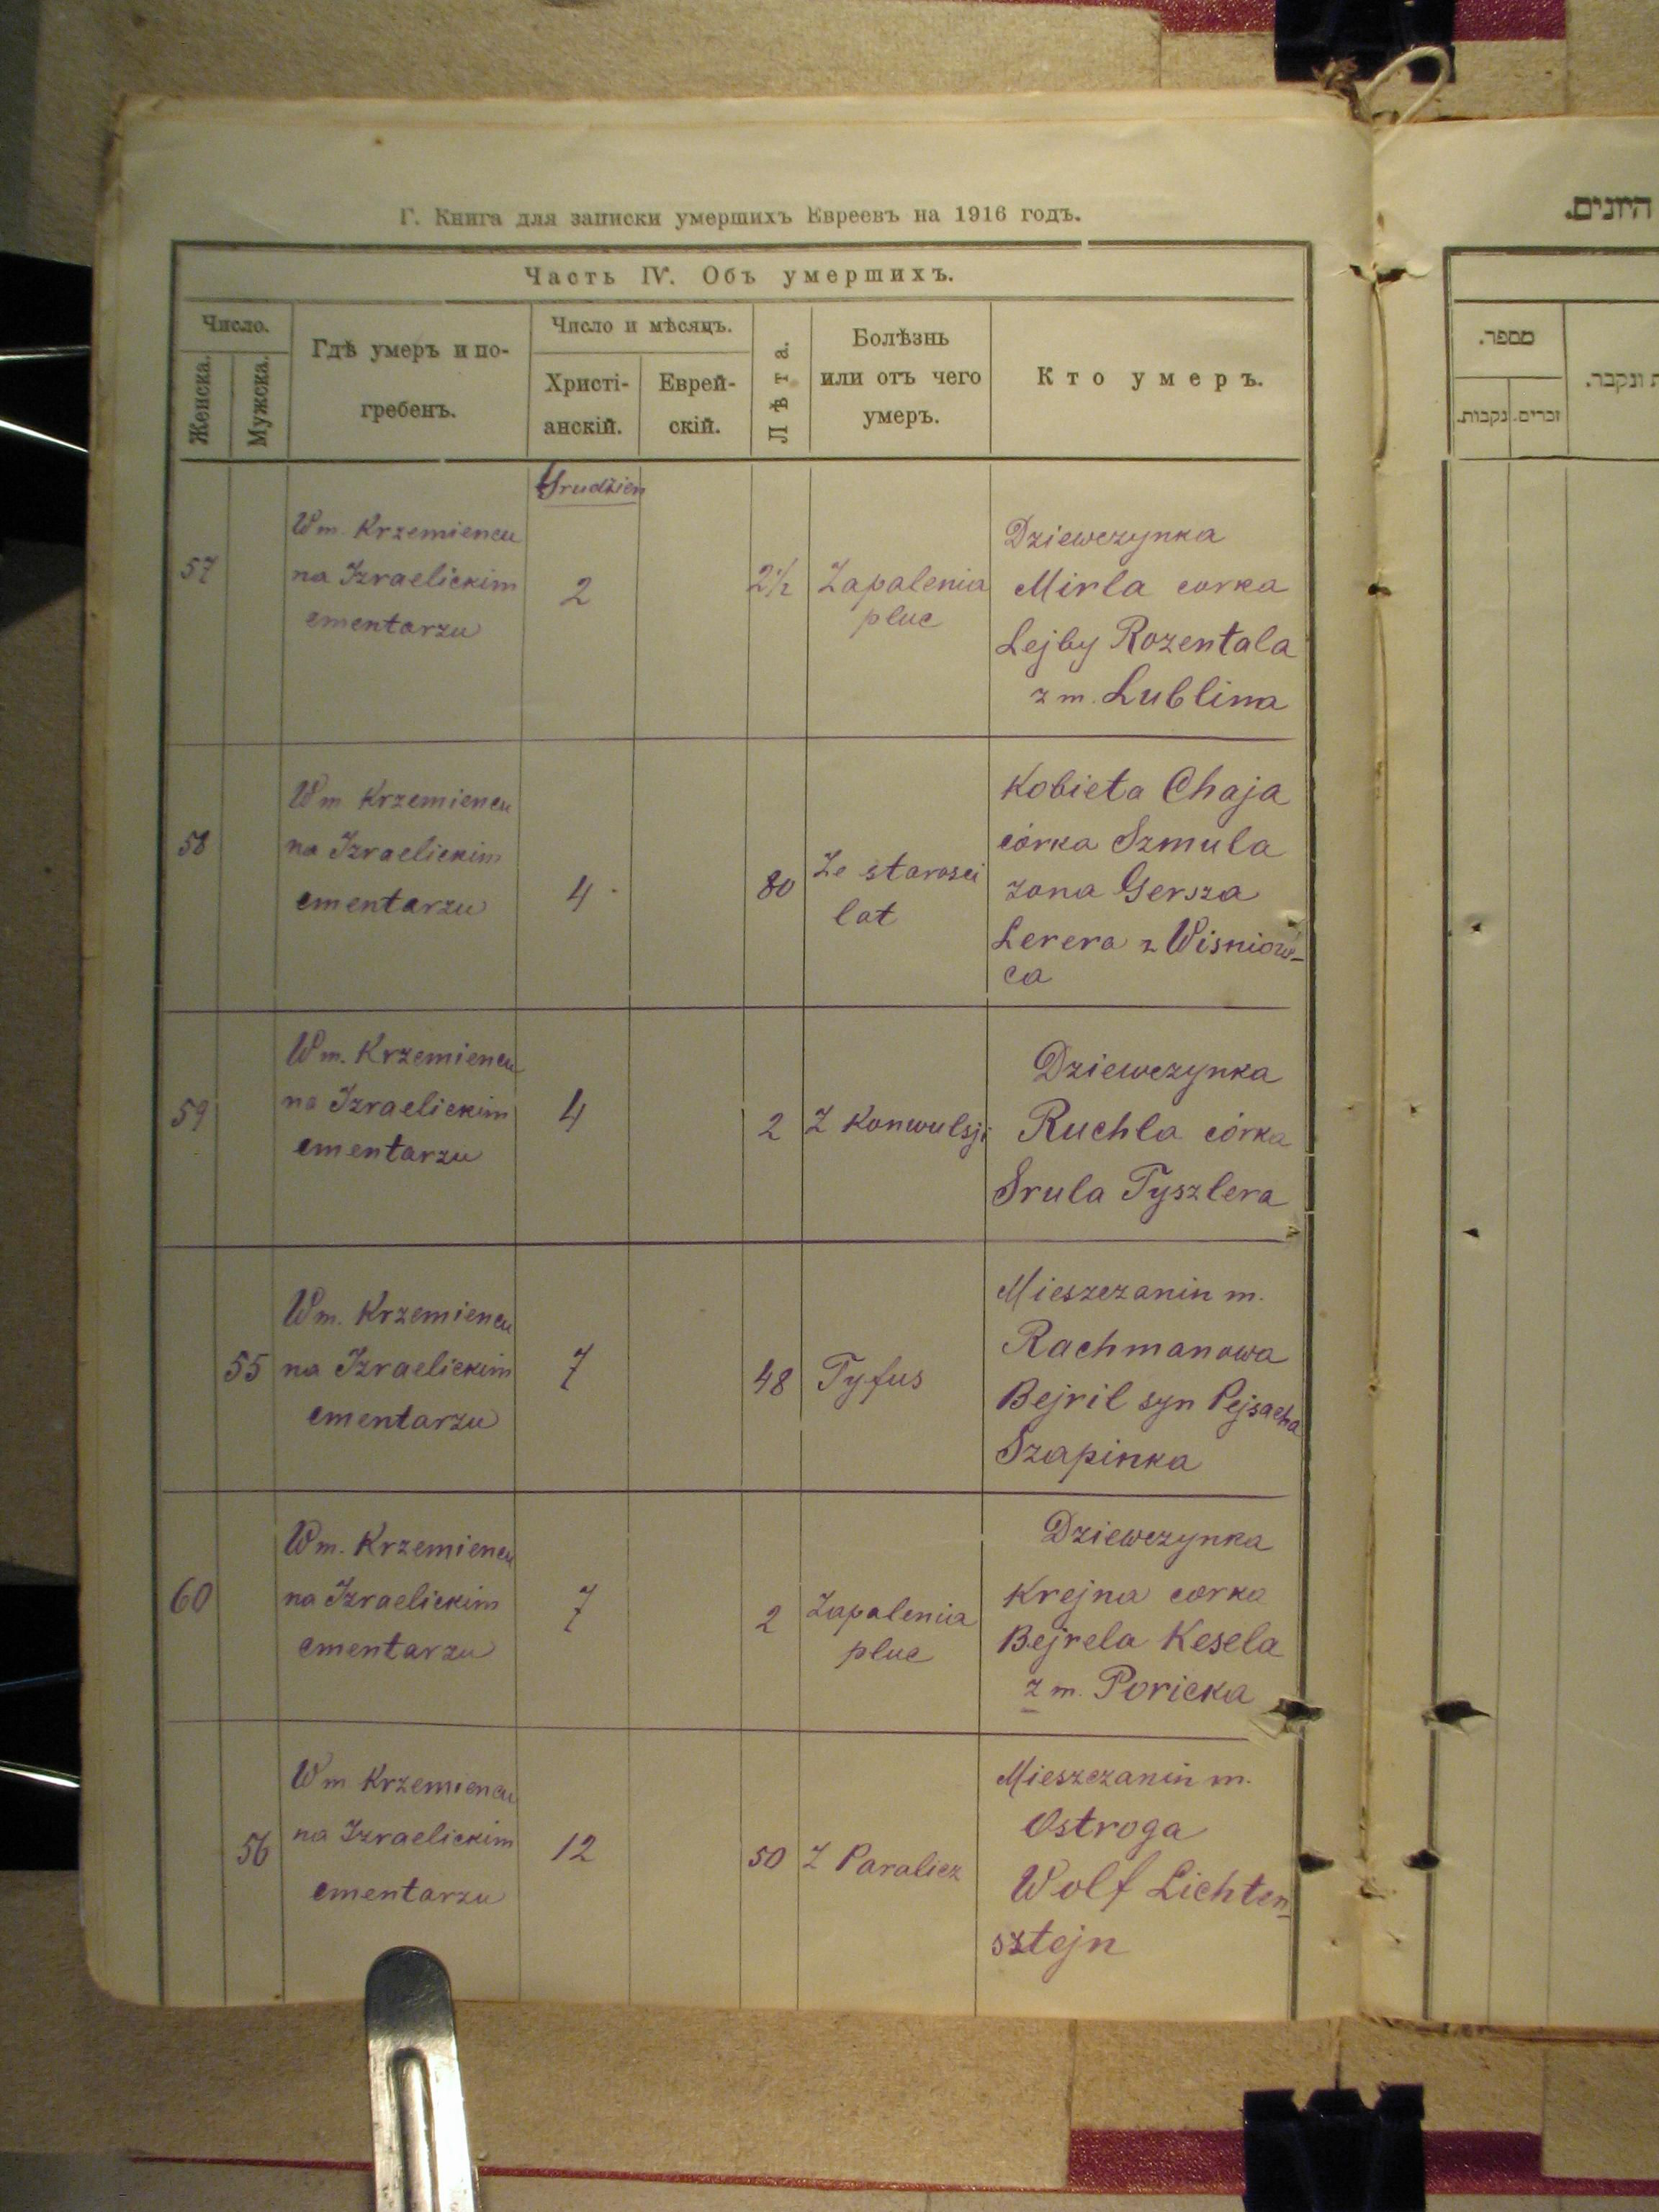 Г. Книга для записки умершихъ Евреевъ на 1916 годъ.
Часть IV. Объ умершихъ.
Число.
Женска.
Мужска.
Гдѣ умеръ и по-
гребенъ.
Число и мѣсяцъ.
Христі-
анскій.
Еврей-
скій.
Лѣта.
Болѣзнь
или отъ чего
умеръ.
Кто умеръ.
Grudzien
57
W m. Krzemiencu
na Izraelickim
cmentarzu
2
2½
Zapalenia
pluc
Dziewczynka
Mirla corka
Lejby Rozentala
z m. Lublina
58
W m Krzemiencu
na Izraelickim
cmentarzu
4
80
Ze starosci
lat
Kobieta Chaja
córka Szmula
zona Gersza
Lerera z Wisniow-
ca
59
W m. Krzemiencu
na Izraelickim
cmentarzu
4
2
Z Konwulsji
Dziewczynka
Ruchla córka
Srula Tyszlera
55
W m. Krzemiencu
na Izraelickim
cmentarzu
7
48
Tyfus
Mieszczanin m.
Rachmanowa
Bejril syn Pejsacha
Szapinka
60
W m. Krzemiencu
na Izraelickim
cmentarzu
7
2
Zapalenia
pluc
Dziewczynka
Krejna corka
Bejrela Kesela
z m. Poricka
56
W m Krzemiencu
na Izraelickim
cmentarzu
12
50
Z Paralicz
Mieszczanin m.
Ostroga
Wolf Lichten-
sztejn
היונים.
מספר.
נקבות.
זכרים.
ונקבר.